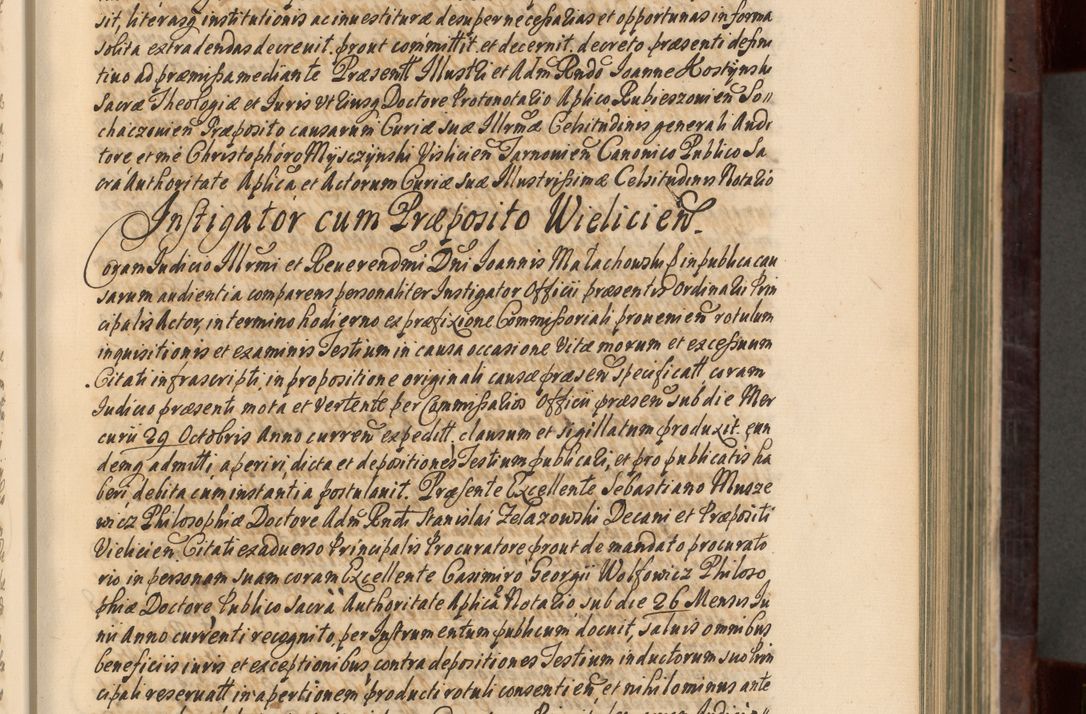 sit, literasq institutionis ac inuestituræ desuper necessarias et opportunas in forma
solita extradendas decreuit, prout committit et decernit, decreto præsenti defini
tiuo ad præmissa mediante Præsentt Illustri et Adm Rndo Joanne Hostynski
Sacræ Theologiæ et Iuris Vtriusq Doctore Protonotario Aplico Rubieszouien So//
chaczouien Præposito causarum Curiæ suæ Illrmæ Celsitudinis generali Audi
tore, et me Christophoro Mysczynski Vislicien Tarnouien Canonico Publico Sa
cra Authoritate Aplica et Actorum Curiæ suæ Illustrissimæ Celsitudinis Notario
Instigator cum Præposito Wielicien.
Coram Iudicio Illrmi et Reuerendmi Dni Joannis Małachowski in publica cau
sarum audientia comparens personaliter Instigator Officii præsentis Ordinarii Prin
cipalis Actor, in termino hodierno ex præfixione Commissoriali proueniem rotulum
inquisitionis et examinis Testium in causa occasione Vitæ morum et excessuum
Citati infrascripti, in propositione originali causæ præsen specificatt coram
Iudicio præsenti mota et vertente per Commissarios Officii præsen sub die Mer
curii 29 Octobris Anno curren expeditt, clausum et sigillatum produxit, eun
demq admitti, aperiri, dicta et depositiones Testium publicari, et pro publicatis ha
beri, debita cum instantia postulauit. Præsente Excellente Sebastiano Musze
wicz Philosophiæ Doctore Adm Rndi Stanislai Zelazowski Decani et Præpositi
Vielicien Citati ex aduerso Principalis Procuratore prout de mandato procurato
rio in personam suam coram Excellente Casimiro Georgii Wolfowicz Philoso
phiæ Doctore Publico Sacra Authoritate Aplica Notario sub die 26 Mensis Iu
nii Anno currenti recognito, per Instrumentum publicum docuit, saluis omnibus
beneficiis iuris et exceptionibus contra depositiones Testium inductorum suo Prin
cipali reseruatt in apertionem producti rotuli consentien, et nihilominus ante